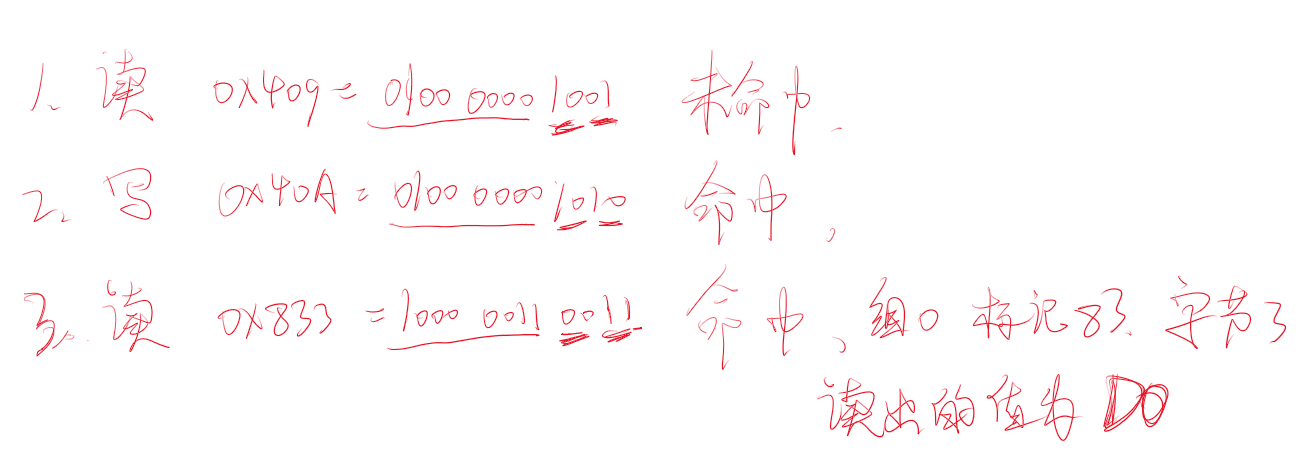 1. 读 0x409 = 0100 0000 1001 未命中.
2. 写 0x40A = 0100 0000 1010 命中,
3. 读 0x833 = 1000 0011 0011 命中、组0 标记83、字节3
读出的值为 D0